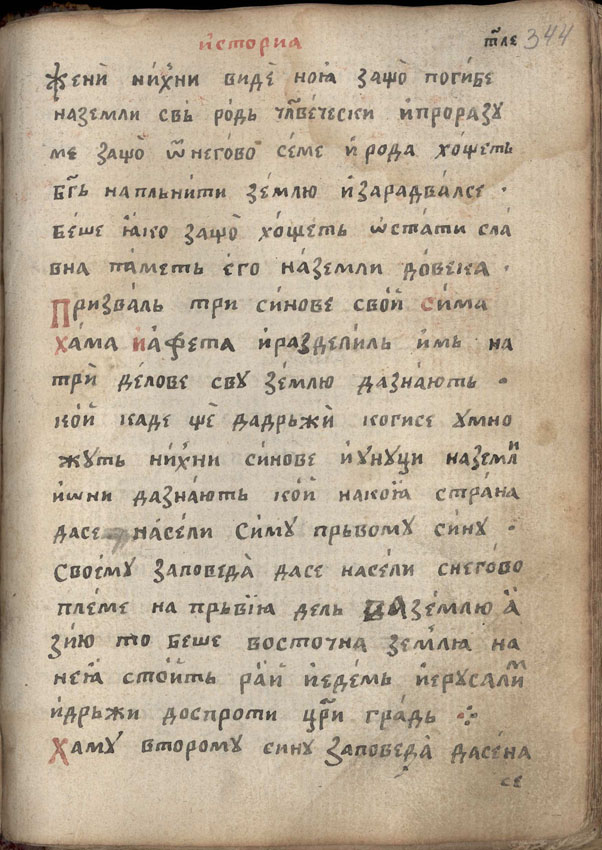 история т҃ле 344
жени ни́хни виде ноꙗ защо̀ погибе
наземли свь рѡдь чл҃ве́чески и҆проразу
ме защо̀ ѿнегѡво се́ме и҆ рода хо́щеть
бг҃ь напльни́ти зе́млю и҆зарадва́лсе ·
бе́ше ꙗ҆ко защо̀ хо́щеть ѡ҆ста́ти сла́
вна па́меть е҆го на́земли до́века ·
Призва́ль три си́нове свои̑ Си́ма
ха́ма и҆а҆фета и҆раздели́ль и҆мь на
три̑ де́лове сву зе́млю дазна́ють ·
ко́и каде щѐ дадрьжѝ когисе умно
жуть ни́хни синове и҆уну́ци наземли
и҆ѡни дазна́ють ко́и нако́ꙗ стра́на
дасе на́сели Си́му прьвому си́ну ·
Свое́му заповеда̀ дасе насели снего́во
пле́ме на прьвїꙗ дель на зе́млю а҆
зи́ю то беше восточна земла на
не́ꙗ стои̑ть ра́й и҆еде́мь и҆еруса́лим
и҆дрьжи доспроти цр҃и гра́дь ⁘
Хаму второму сину заповеда̀ дасе́на
се